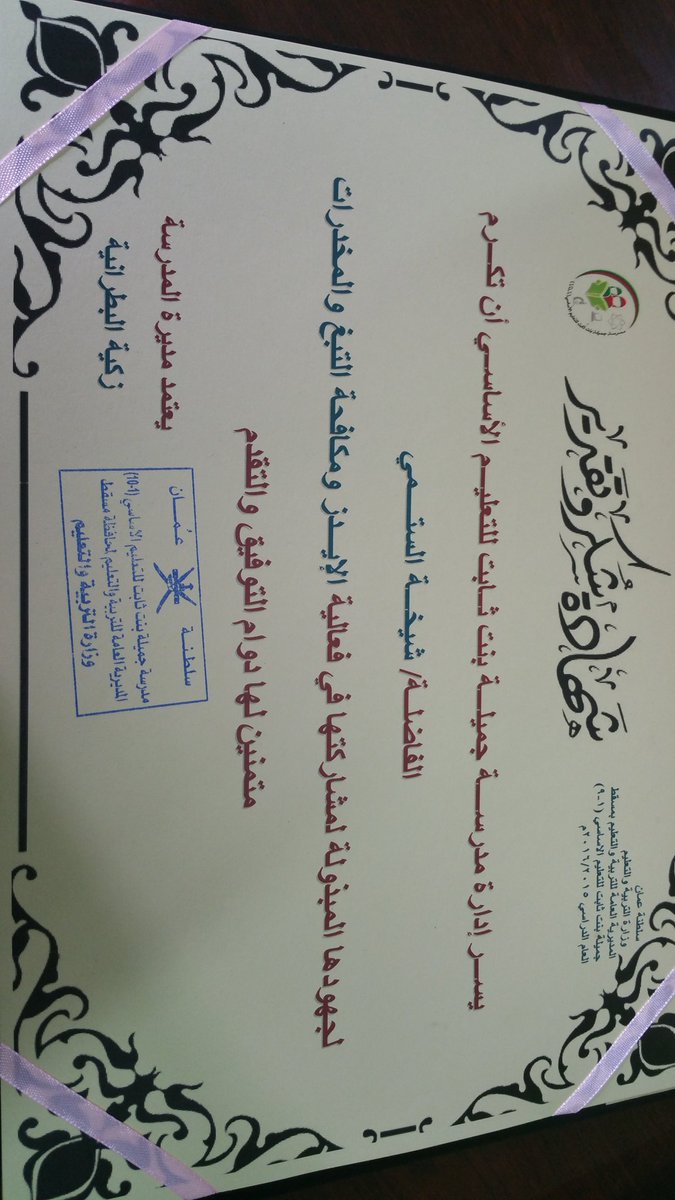 سلطنة عمان
وزارة التربية والتعليم
المديرية العامة للتربية والتعليم بمسقط
جميلة بنت ثابت للتعليم الاساسي (١-٩)
العام الدراسي ٢٠١٦/٢٠١٥م
شهادة شكر وتقدير
يسر إدارة مدرسة جميلة بنت ثابت للتعليم الأساسي أن تكرم
الفاضلة/ شيخة الستمي
لجهودها المبذولة لمشاركتها في فعالية الإيدز ومكافحة التبغ والمخدرات
متمنين لها دوام التوفيق والتقدم
يعتمد مديرة المدرسة
زكية البطرانية
سلطنة عمان
مدرسة جميلة بنت ثابت للتعليم الاساسي (1-10)
المديرية العامة للتربية والتعليم لمحافظة مسقط
وزارة التربية والتعليم